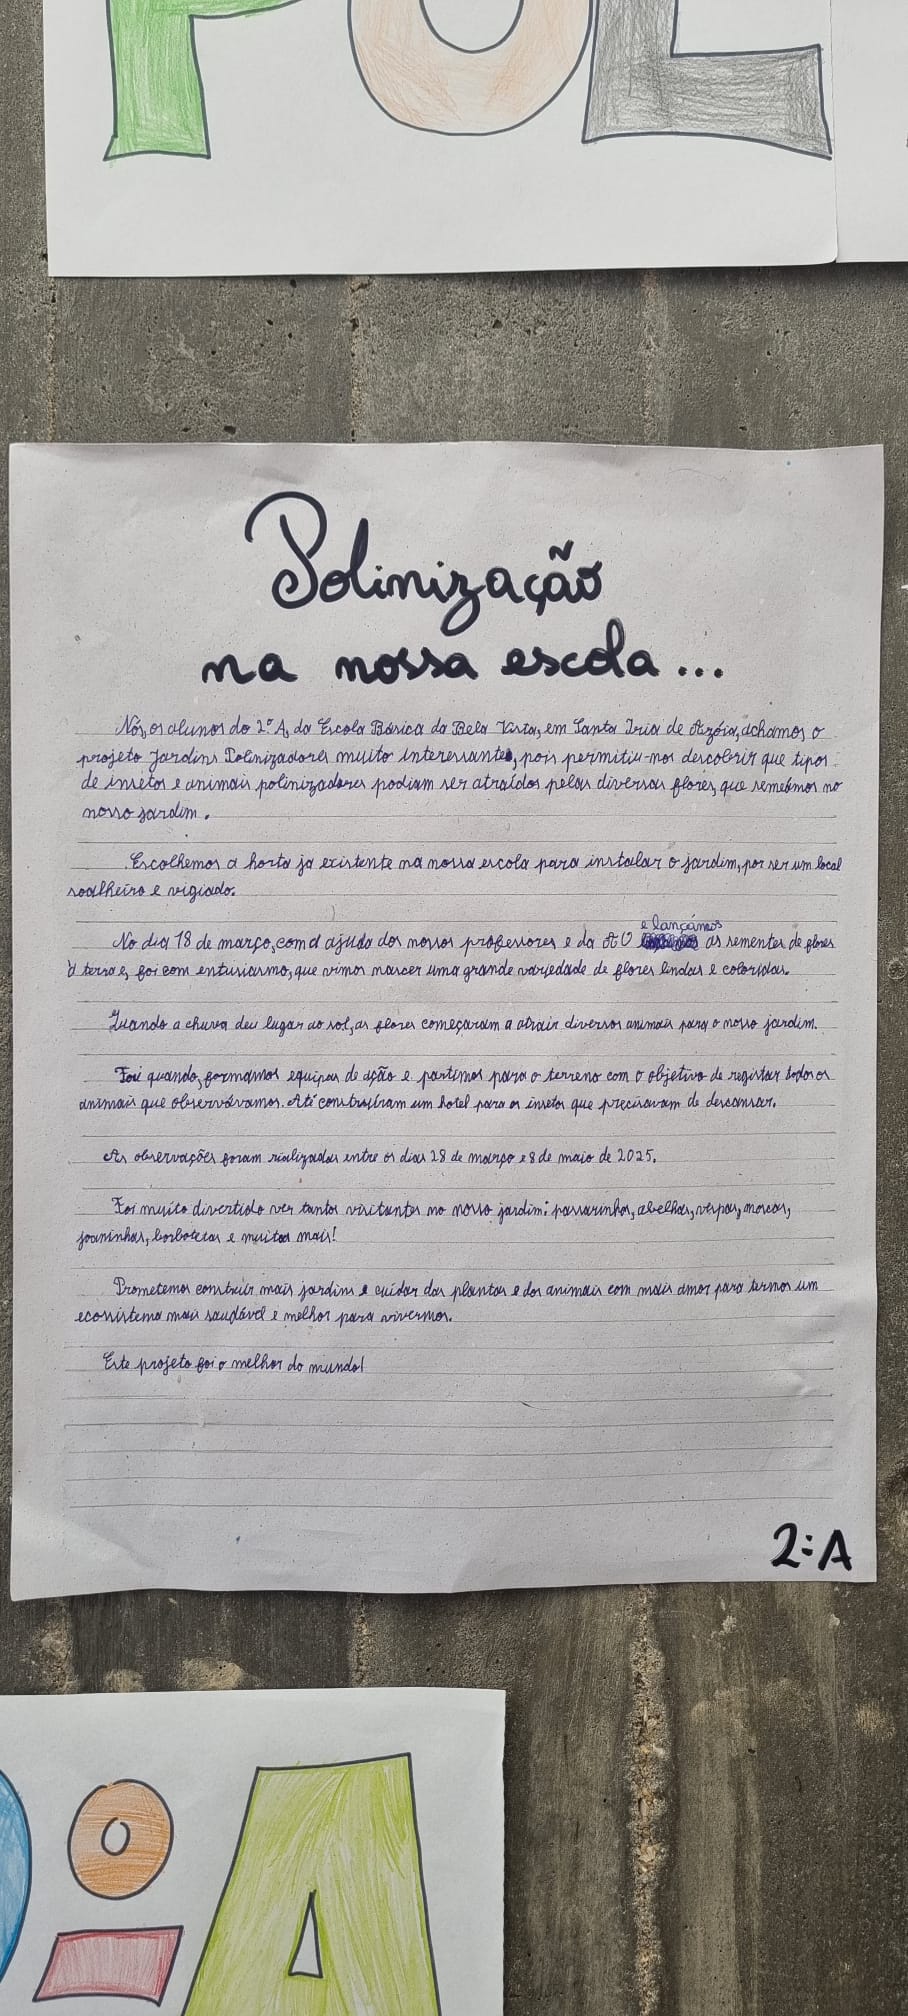 POL
Polinização
na nossa escola...
Nós, os alunos do 2º A, da Escola Básica da Bela Vista, em Santa Iria de Azóia, achamos o
projeto Jardins Polinizadores muito interessante, pois permitiu-nos descobrir que tipos
de insetos e animais polinizadores podiam ser atraídos pelas diversas flores, que semeámos no
nosso jardim.
Escolhemos a horta já existente na nossa escola para instalar o jardim, por ser um local
soalheiro e vigiado.
No dia 18 de março, com a ajuda dos nossos professores e da AO e lançámos as sementes de flores
à terra e, foi com entusiasmo, que vimos nascer uma grande variedade de flores lindas e coloridas.
Quando a chuva deu lugar ao sol, as flores começaram a atrair diversos animais para o nosso jardim.
Foi quando, formamos equipas de ação e partimos para o terreno com o objetivo de registar todos os
animais que observávamos. Até construíram um hotel para os insetos que precisavam de descansar.
As observações foram realizadas entre os dias 28 de março e 8 de maio de 2025.
Foi muito divertido ver tantos visitantes no nosso jardim: passarinhos, abelhas, vespas, moscas,
joaninhas, borboletas e muitos mais!
Prometemos construir mais jardins e cuidar das plantas e dos animais com mais amor para termos um
ecossistema mais saudável e melhor para vivermos.
Este projeto foi o melhor do mundo!
2ºA
ºA